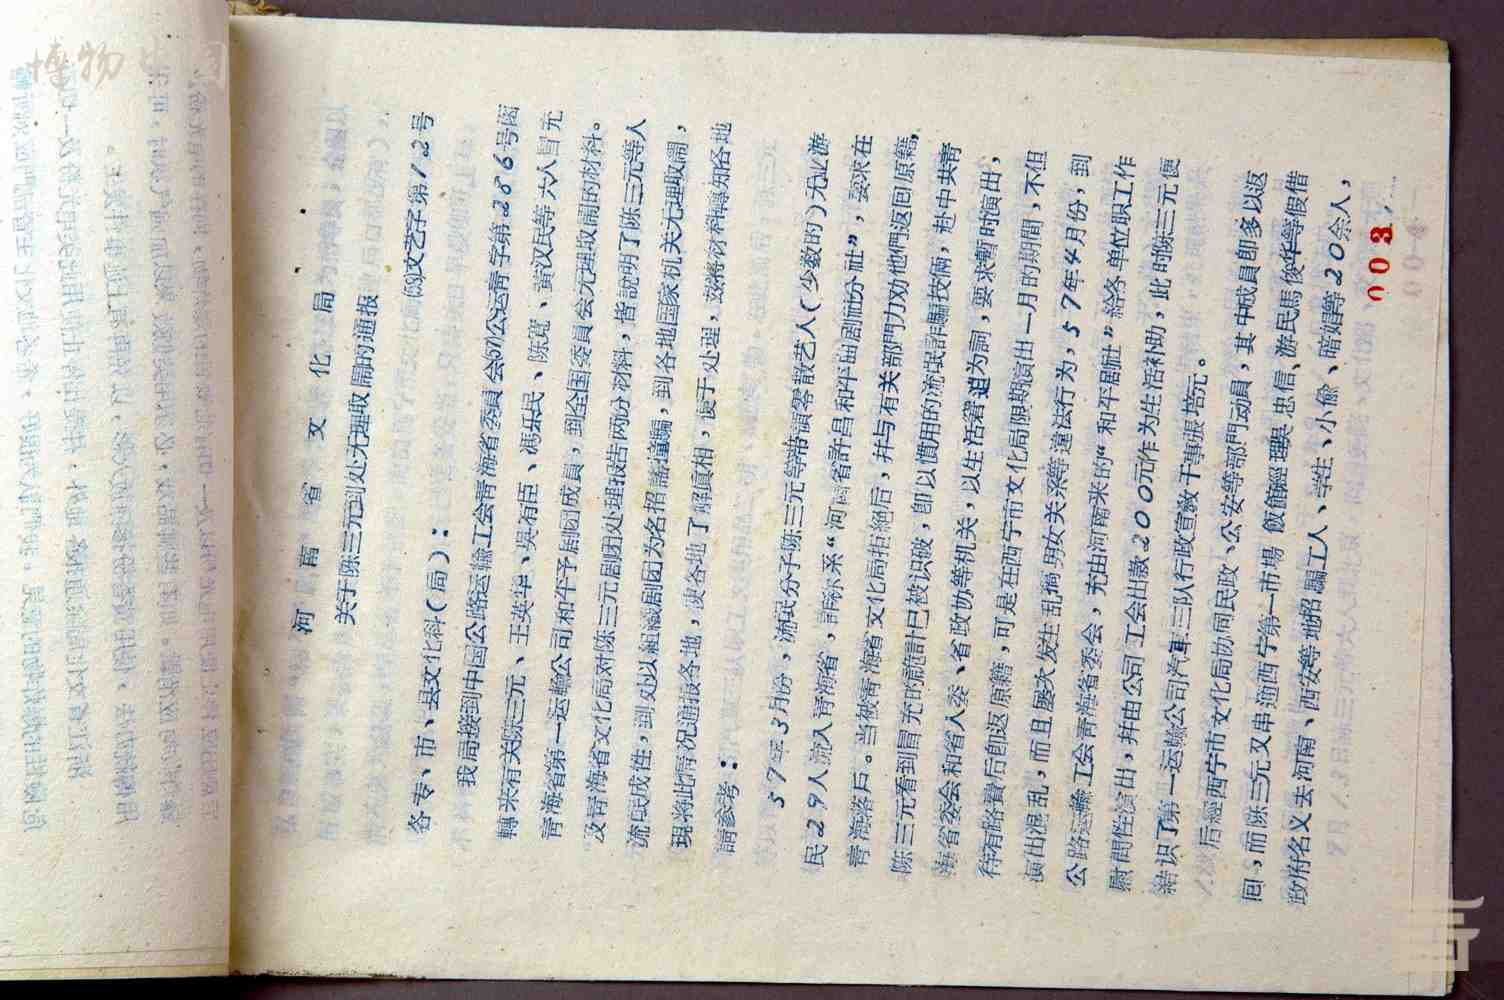 博物中国
河南省文化局
关于陈三元到处无理取鬧的通报
(58)文艺字第12号
各专、市、县文化科(局):
我局接到中国公路运輸工会青海省委員会(58)公运青字第286号函
轉来有关陈三元、王英华、吴有臣、馮乐民、陈寬、黄汉民等六人冒充
青海省第一运輸公司和平予剧团成員,到全国委員会无理取鬧的材料。
及青海省文化局对陈三元剧团处理报告两分材料,皆說明了陈三元等人
流氓成性,到处以組織剧团为名招謠撞騙,到各地国家机关无理取鬧,
現将此情况通报各地,使各地了解真相,便于处理,茲将材料轉知各地
請参考:
57年3月份,流氓分子陈三元等带領零散艺人(少数的)无业游
民29人流入青海省,詐称系“河南省許昌和平曲剧团分社”,要求在
青海落戶。当被青海省文化局拒絶后,并与有关部門力劝他們返回原籍,
陈三元看到冒充的詭計已被识破,即以慣用的流氓詐騙技倆,赴中共青
海省委会和省人委、省政协等机关,以生活窘迫为詞,要求暫时演出,
待有路費后即返原籍,可是在西宁市文化局限期演出一月的期間,不但
演出混乱,而且屡次发生乱搞男女关系等違法行为,57年4月份,到
公路运輸工会青海省委会,充由河南来的“和平剧社”給各单位职工作
慰問性演出,并由公司工会出款200元作为生活补助,此时陈三元便
結识了第一运輸公司汽車三队行政宣教干事張培元。
后經西宁市文化局协同民政、公安等部門动員,其中成員即多以返
回,而陈三元又串通西宁第一市場飲館經理吳忠信、游民馬俊华等假借
政府名义去河南、西安等地招騙工人、学生、小偸、暗娼等20余人,
003